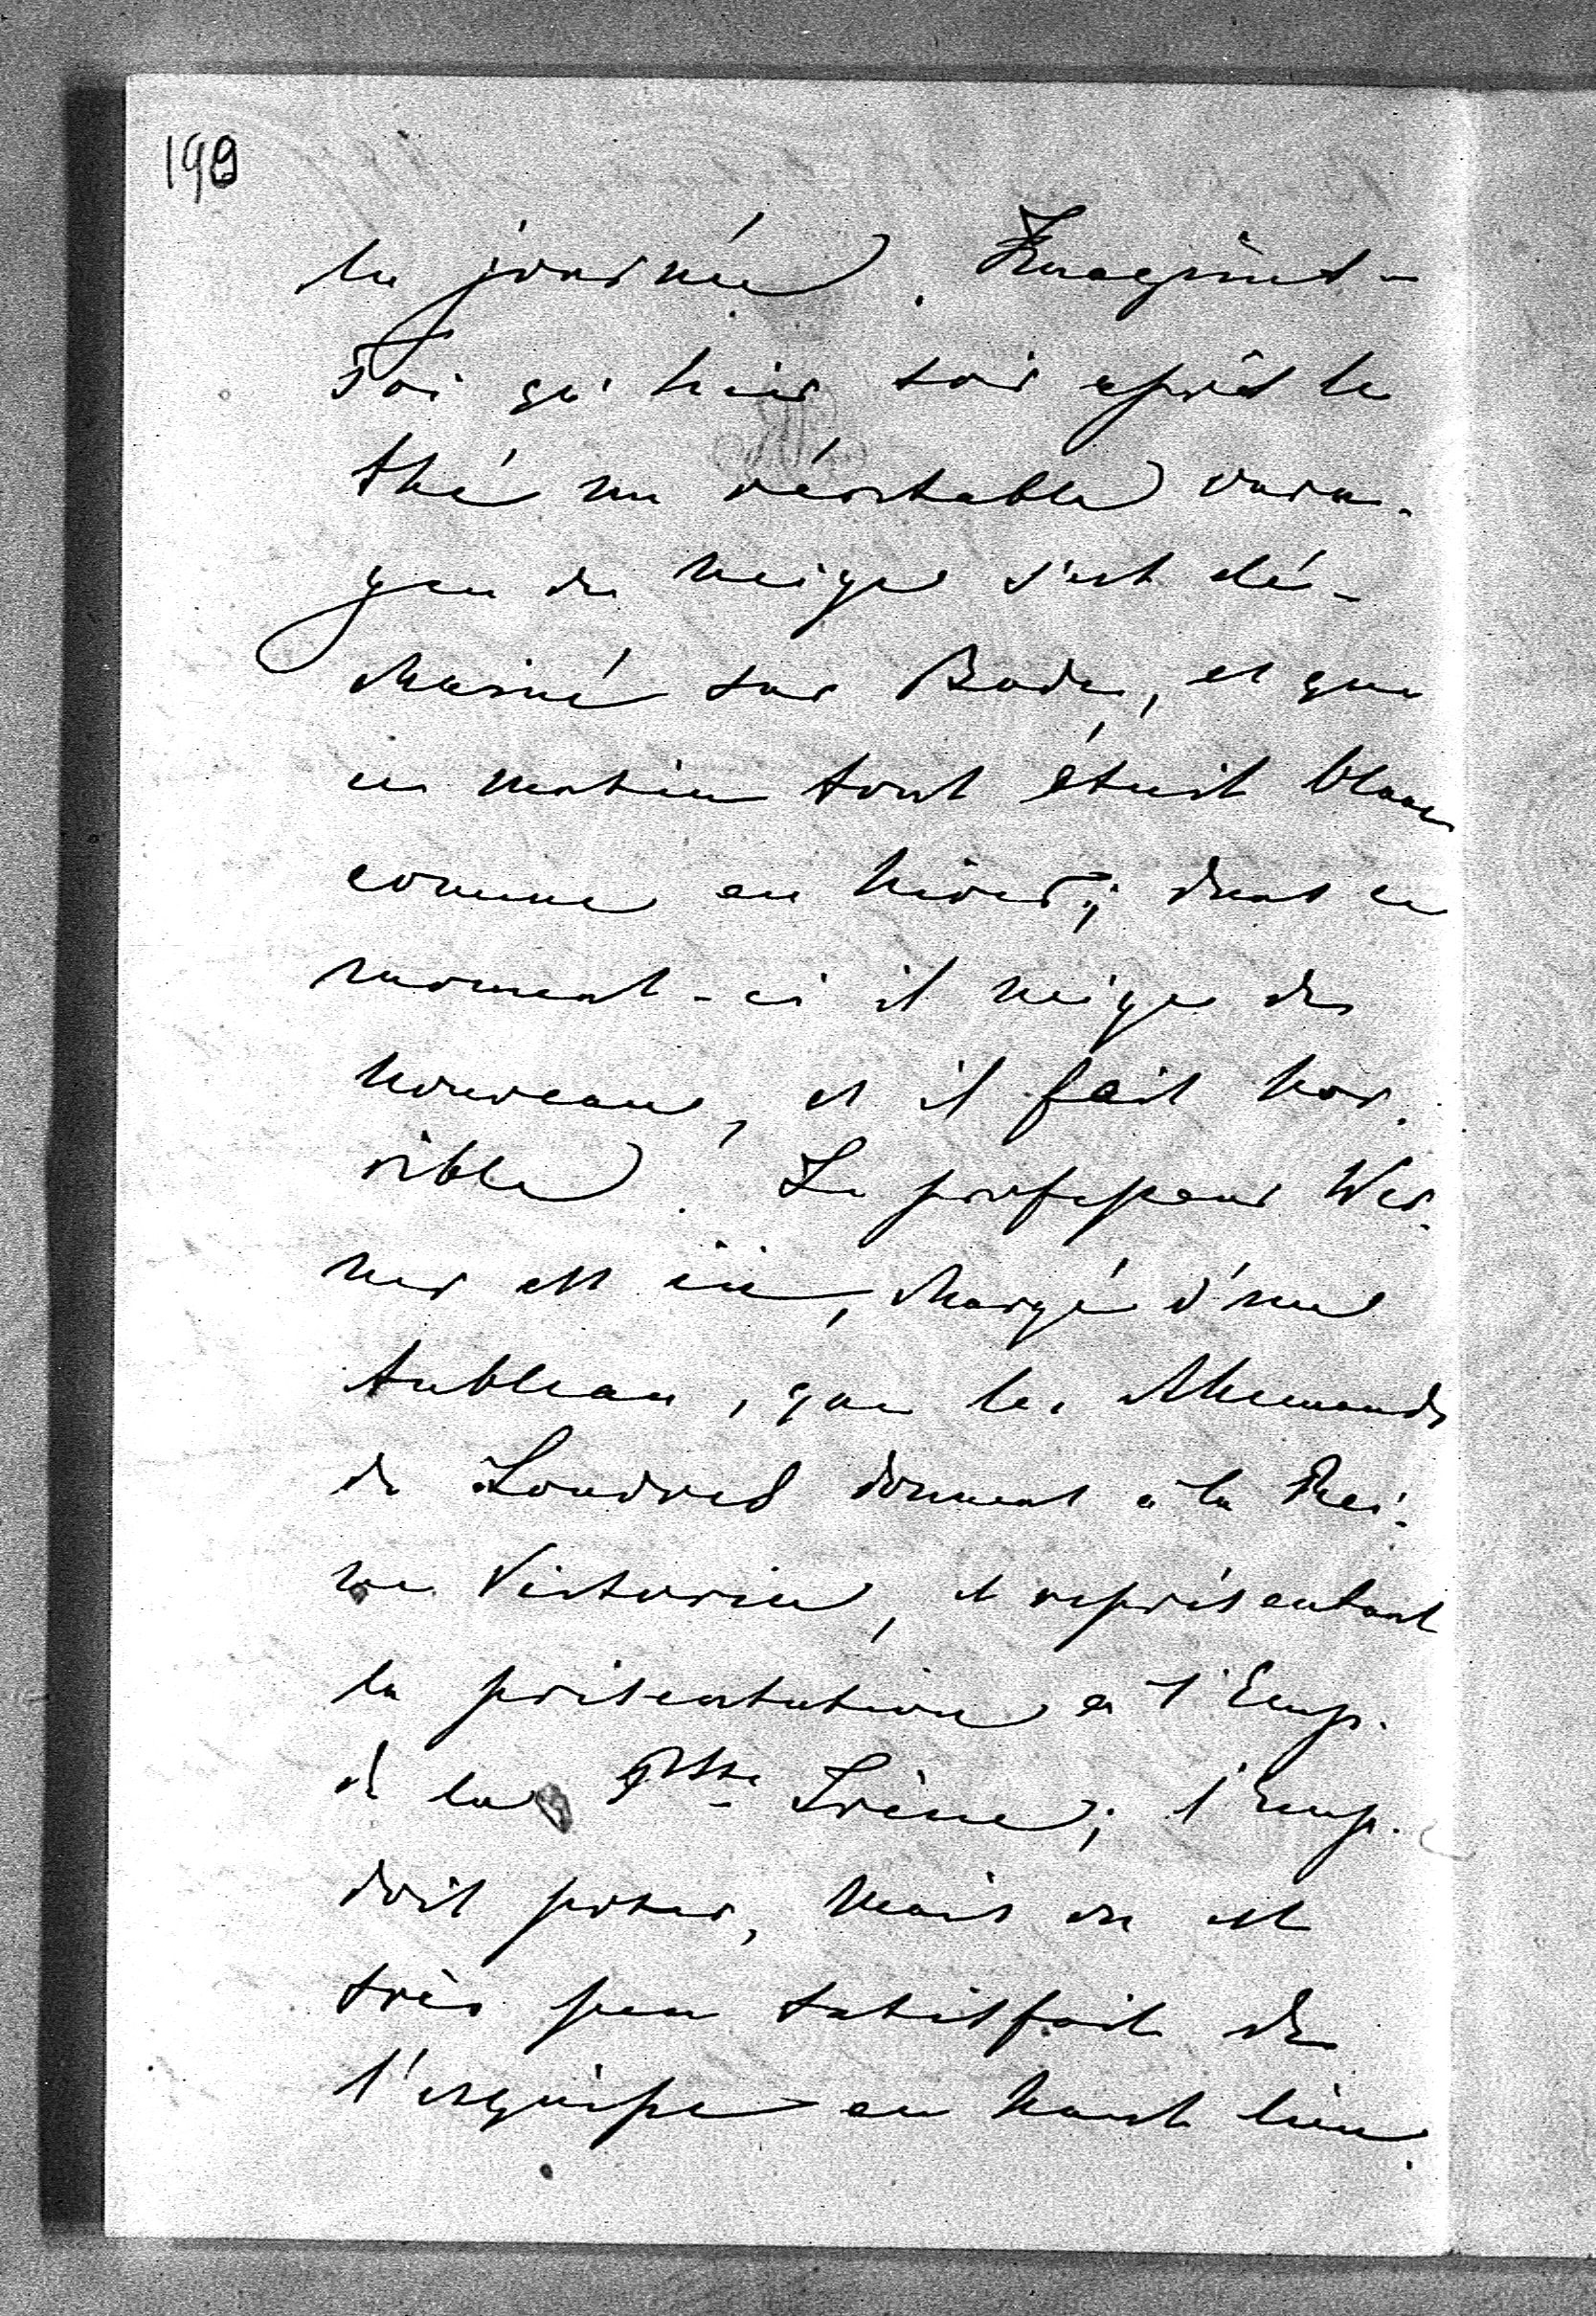 199
la journée. Imagines-
Toi qu'hier soir après le
thé un véritable oura-
gan de neige s'est dé-
chainé sur Bade, et que
ce matin tout était blanc
comme en hiver; dans ce
moment-ci il neige de
nouveau, et il fait hor-
rible. Le professeur Wer-
ner est ici, chargé d'un
tableau, que les Allemands
de Londres donnent à la Rei-
ne Victoria, et représentant
la présentation à l'Emp.
de la Psse Irène; l'Emp.
doit poser, mais on est
très peu satisfait de
l'esquisse en haut lieu.